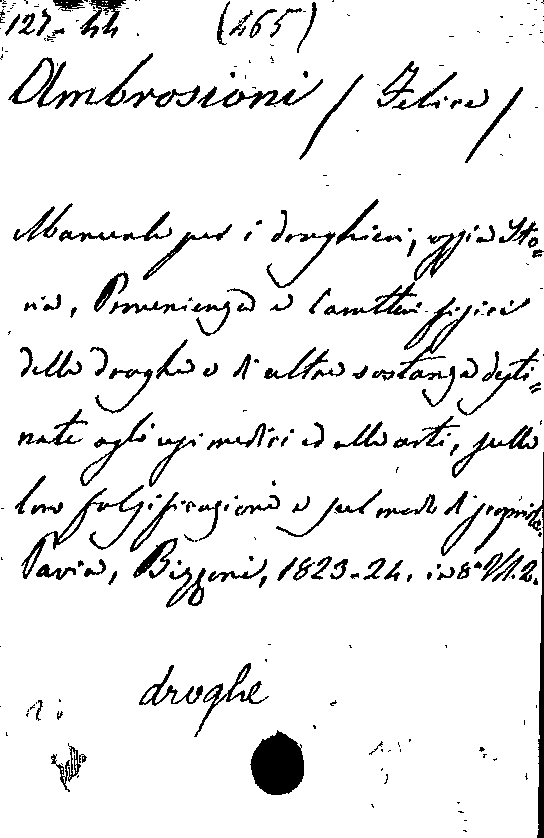 127-44 (465)
Ambrosioni / Felice /
Manuale per i droghieri, ossia Sto=
ria, Provenienza e Caratteri fisici
delle droghe e di altre sostanze desti=
nate agli usi medici ed alle arti, sulle
loro falsificazioni e sul modo di scoprirle.
Pavia, Bizzoni, 1823-24. in 8° Vol. 2.
droghe